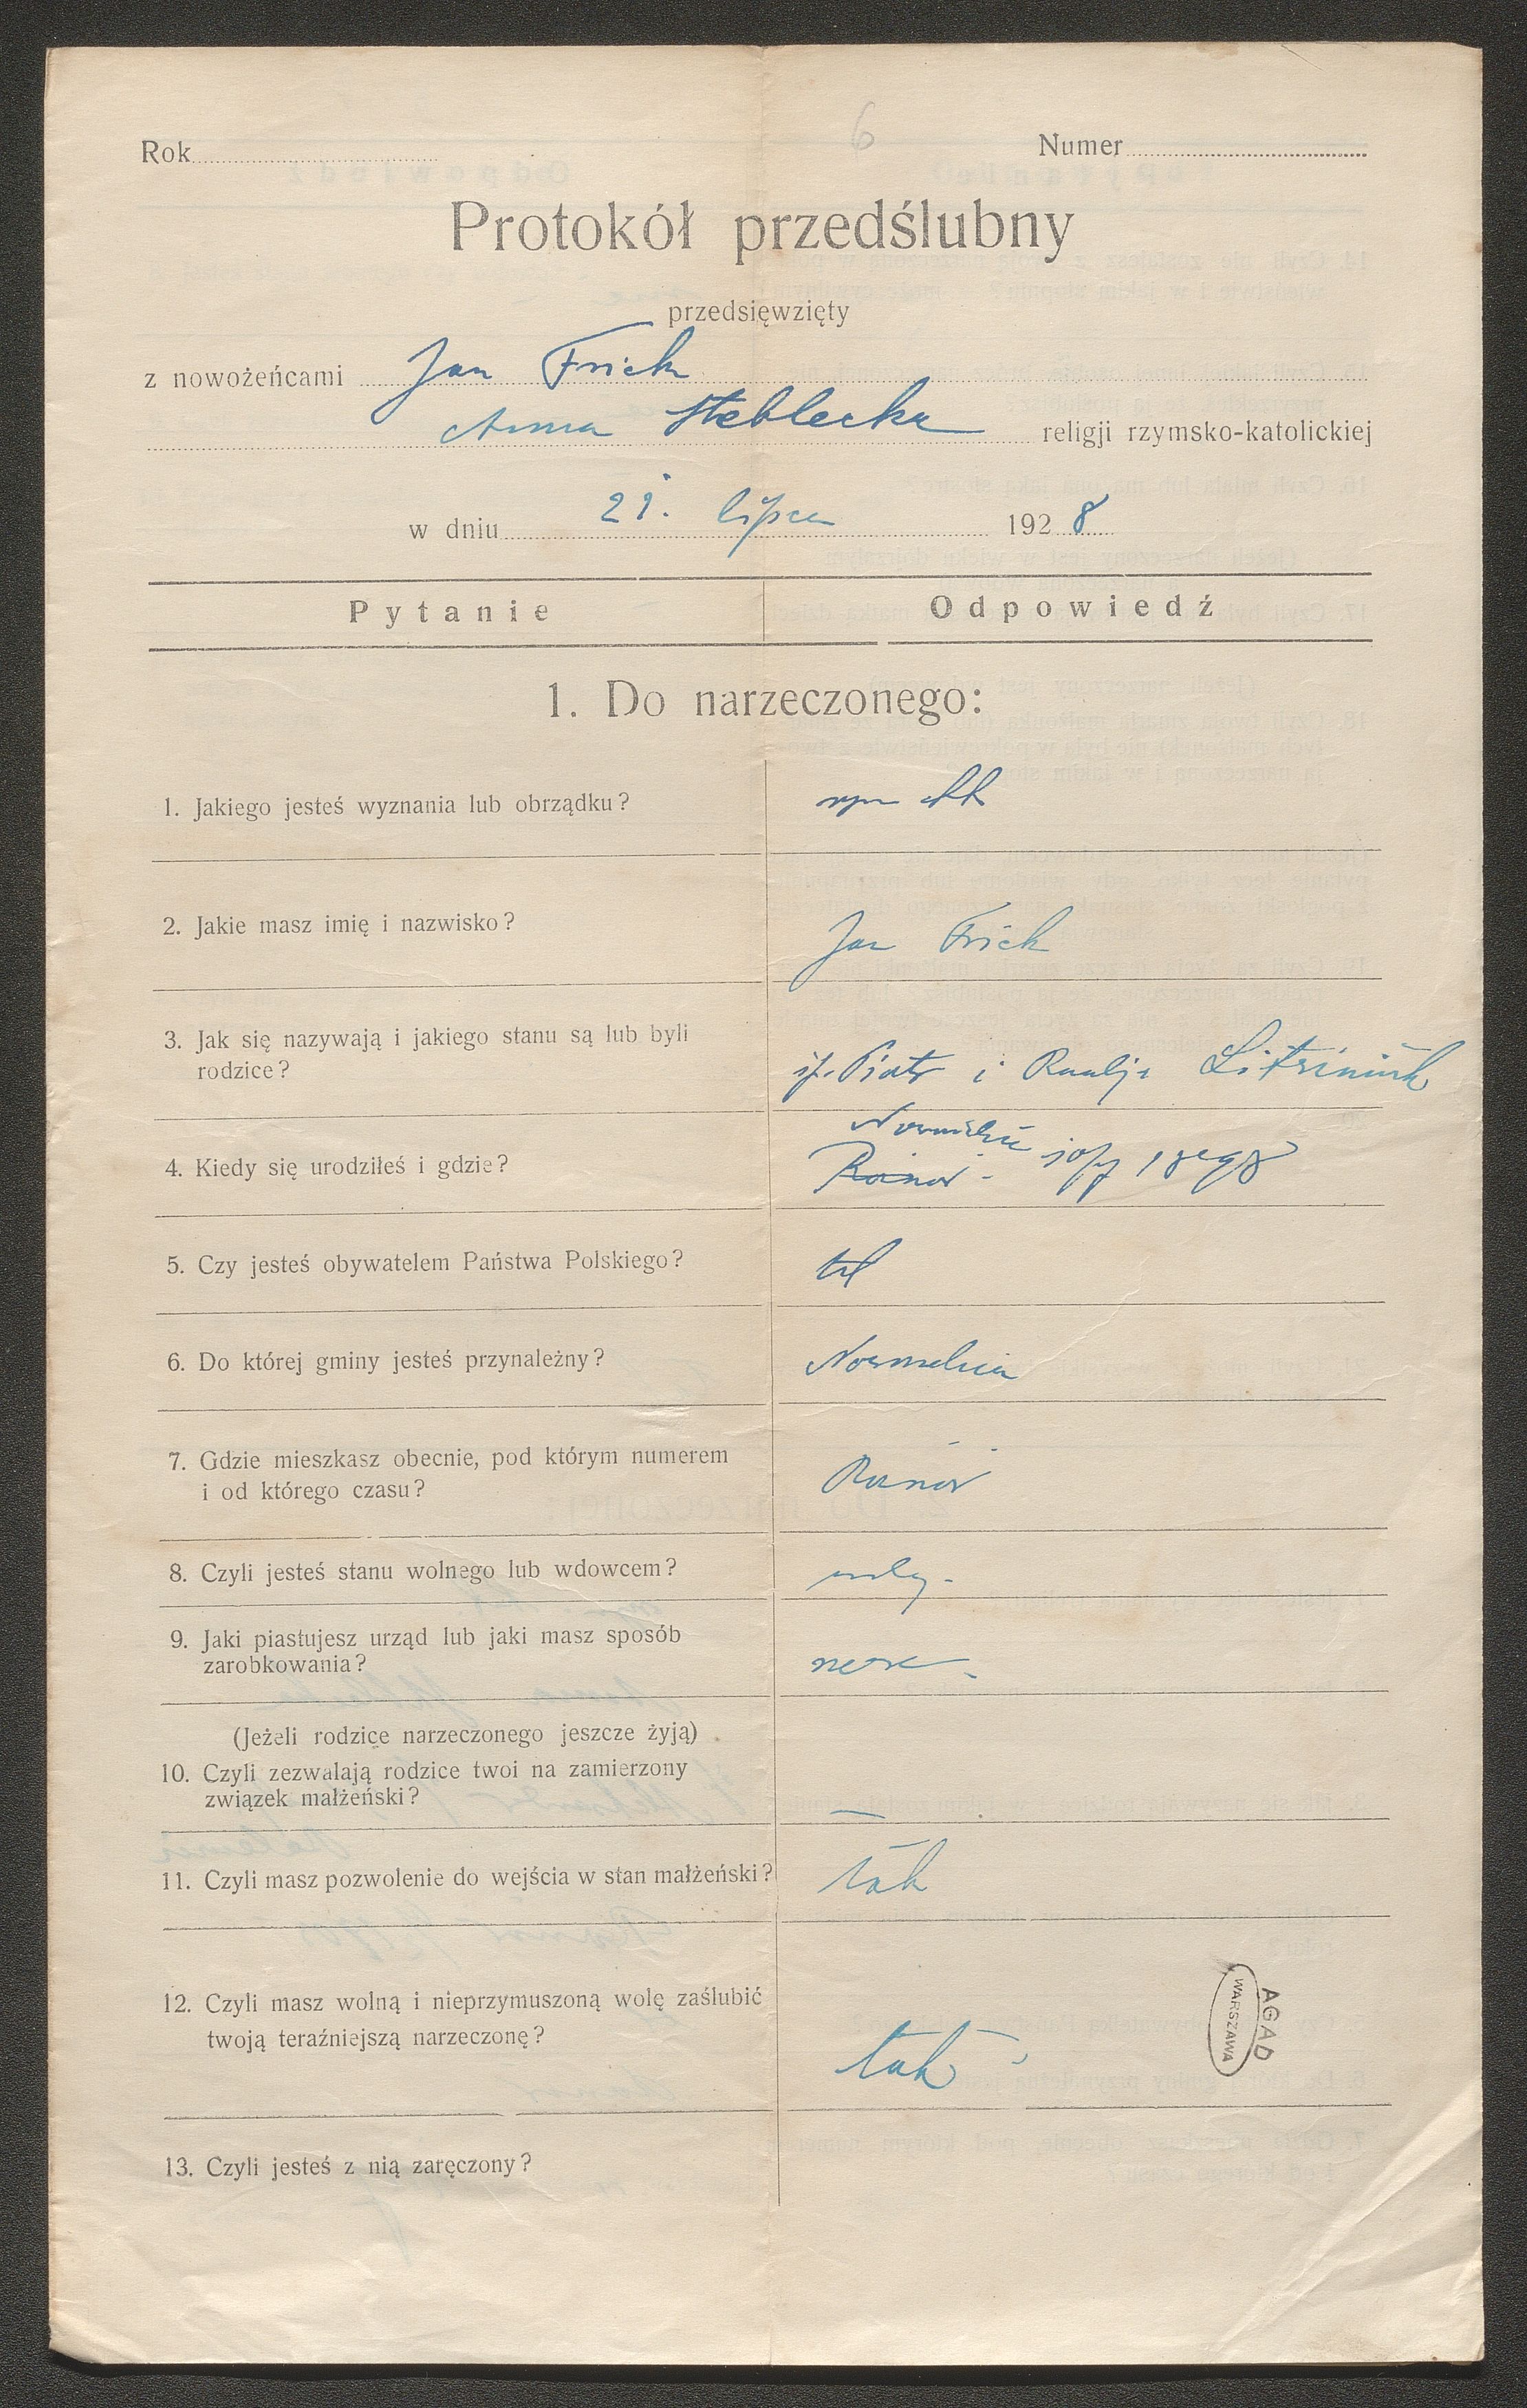 6
Rok
Numer
Protokół przedślubny
przedsięwzięty
z nowożeńcami Jan Frick
Anna Steblecka religji rzymsko-katolickiej
w dniu 21. lipca 1928
Pytanie Odpowiedź
1. Do narzeczonego:
1. Jakiego jesteś wyznania lub obrządku?
2. Jakie masz imię i nazwisko? Jan Frick
3. Jak się nazywają i jakiego stanu są lub byli
rodzice?
Piotr i
4. Kiedy się urodziłeś i gdzie?
5. Czy jesteś obywatelem Państwa Polskiego?
6. Do której gminy jesteś przynależny?
7. Gdzie mieszkasz obecnie, pod którym numerem
i od którego czasu?
8. Czyli jesteś stanu wolnego lub wdowcem?
9. Jaki piastujesz urząd lub jaki masz sposób
zarobkowania?
(Jeżeli rodzice narzeczonego jeszcze żyją)
10. Czyli zezwalają rodzice twoi na zamierzony
związek małżeński? —
11. Czyli masz pozwolenie do wejścia w stan małżeński? tak
12. Czyli masz wolną i nieprzymuszoną wolę zaślubić
twoją teraźniejszą narzeczonę? tak
AGAD
WARSZAWA
13. Czyli jesteś z nią zaręczony?